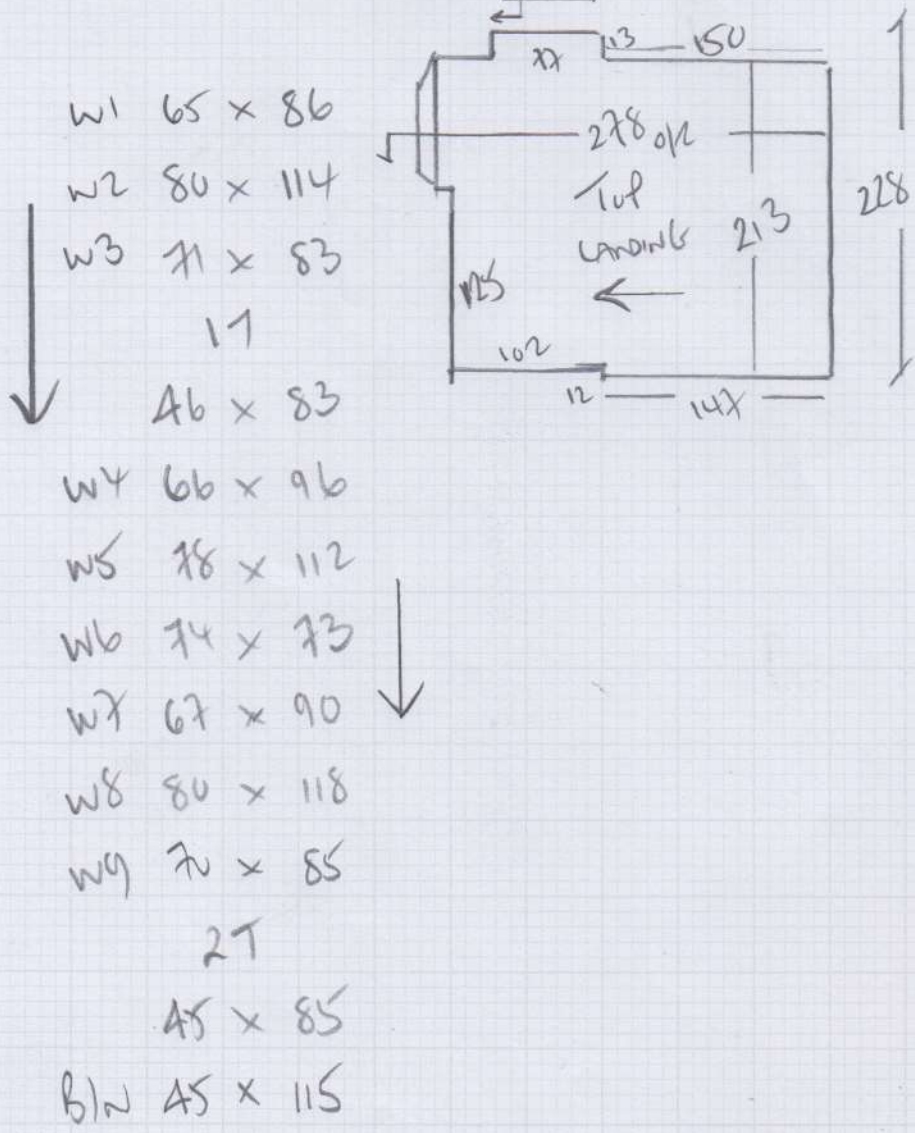 W1 65 x 86
W2 80 x 114
W3 71 x 83
1T
46 x 83
W4 66 x 96
W5 78 x 112
W6 74 x 73
W7 67 x 90
W8 80 x 118
W9 70 x 85
2T
45 x 85
B/N 45 x 115
77
13
150
278 o/R
TOP
LANDING
213
228
125
102
12
147